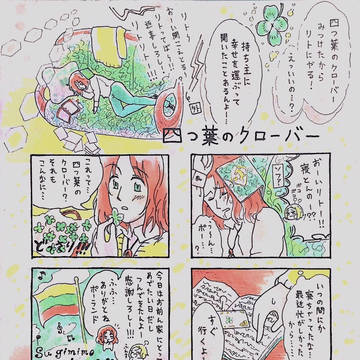 四つ葉のクローバー
みつけたから
リトにやる！
えっいいの！？
持ち主に
幸せを運ぶって
聞いたことあるんよー
リトー！
おーい聞こえとる？
リトってばー！！
返事しろー！！
リトー！！
四つ葉のクローバー
おーいリトー！！
寝とんのー？？
うーん…
これって…
四つ葉の
クローバー？
それも
こんなに…
どっさり!!!
いつの間にか
寝ちゃってたな
最近忙しかった
から…
すぐ
行くよ
今日はお前ん家にとって
めでたい日だし
つんできたんよ
感謝しろしー!!!
ふふ…
ありがとう
ポーランド
Sugimimo